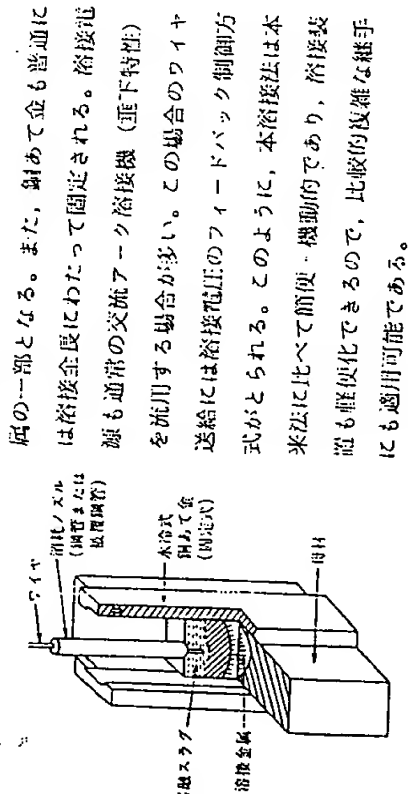 属の一部となる。また，銅あて金も普通に
は溶接全長にわたって固定される。溶接電
源も通常の交流アーク溶接機（垂下特性）
を流用する場合が多い。この場合のワイヤ
送給には溶接電圧のフィードバック制御方
式がとられる。このように，本溶接法は本
来法に比べて簡便・機動的であり，溶接装
置も軽便化できるので，比較的複雑な継手
にも適用可能である。
ワイヤ
消耗ノズル
(鋼管または
被覆鋼管)
水冷式
銅あて金
(固定式)
母材
溶融スラグ
溶接金属